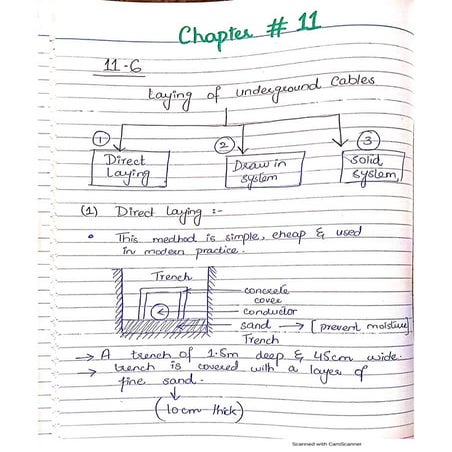 Chapter # 11
11-6
Laying of underground Cables
1
2
3
Direct Laying
Draw in system
Solid system
(1) Direct Laying :-
• This medhod is simple, cheap & used
in modern practice.
Trench
concrete
cover
conductor
sand → [prevent moisture]
Trench
→ A trench of 1.5m deep & 45cm wide.
→ trench is covered with a layer of
fine sand.
(10cm thick)
Scanned with CamScanner